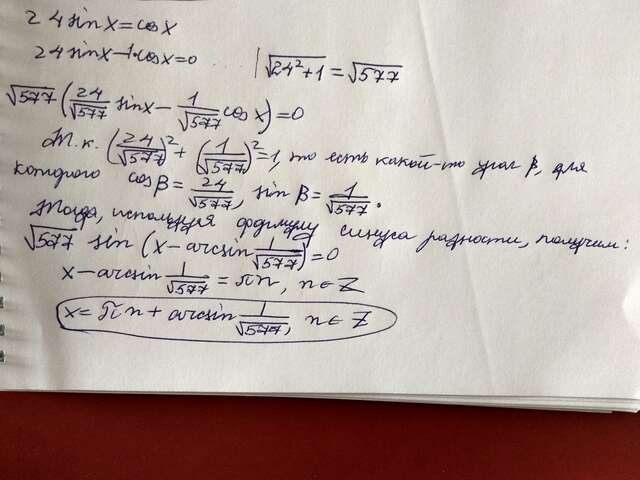 24sinx=cosx
24sinx-1·cosx=0 | √(24²+1) = √577
√577 (24/√577 sinx - 1/√577 cosx)=0
Т.к. (24/√577)² + (1/√577)² =1, то есть какой-то угол β, для
которого cosβ= 24/√577, sinβ= 1/√577.
Тогда, используя формулу синуса разности, получим:
√577 sin (x-arcsin 1/√577)=0
x-arcsin 1/√577 = πn, n∈Z
x= πn + arcsin 1/√577, n∈Z